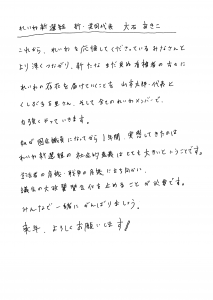 れいわ新選組 新・共同代表 大石あきこ
これから、れいわを応援してくださっているみなさんと
より深くつながり、新たな まだ見ぬ有権者の方々に
れいわの存在を届けていくことを 山本太郎・代表と
くしぶち万里さん、そして全てのれいわメンバーで、
力強くやっていきます。
私が国会議員になってから1年間、実感してきたのは
れいわ新選組の社会的意義はとても大きいということです。
生活苦の危機・戦争の危機に立ち向かい、
議会の大政翼賛会化を止めることが必要です。
みんなで一緒にがんばりましょう。
来年、よろしくお願いします!